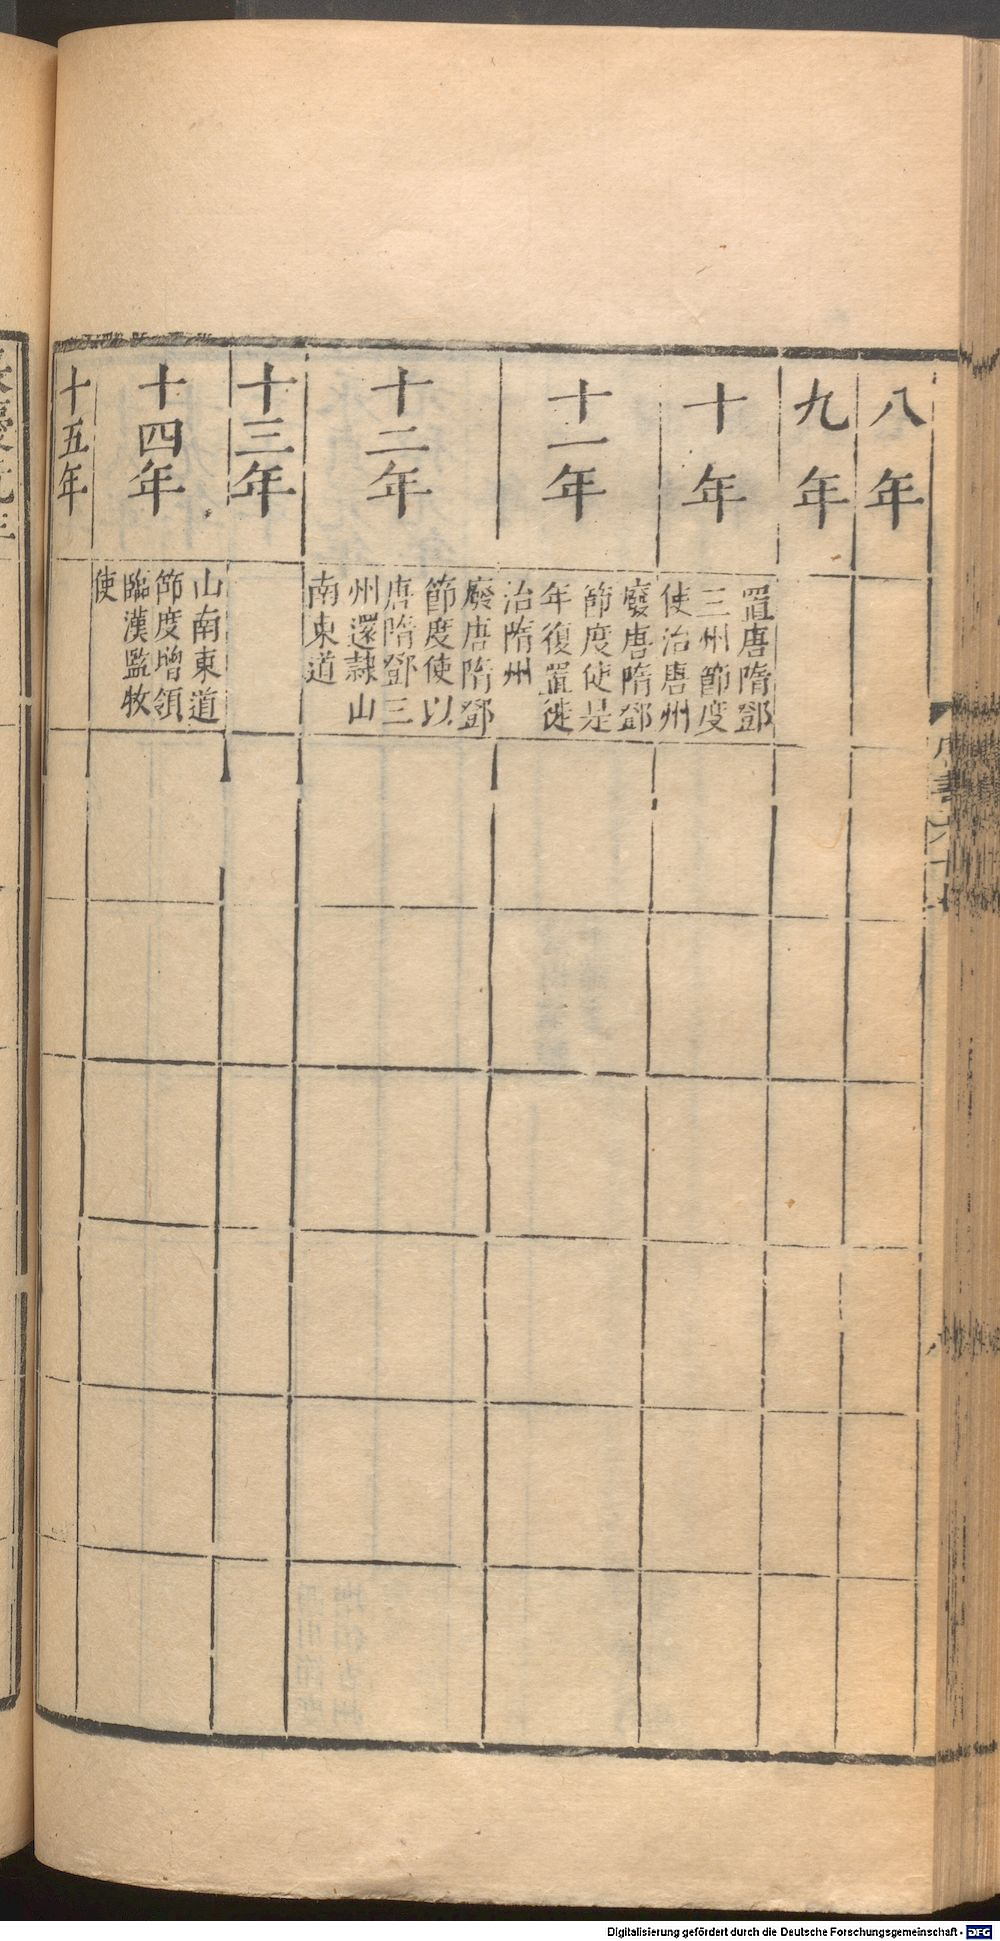 八年
九年
十年
置唐隋鄧
三州節度
使治唐州
十一年
廢唐隋鄧
節度使是
年復置徙
治隋州
十二年
廢唐隋鄧
節度使以
唐隋鄧三
州還隸山
南東道
十三年
十四年
山南東道
節度增領
臨漢監牧
使
十五年
Digitalisierung gefördert durch die Deutsche Forschungsgemeinschaft - DFG